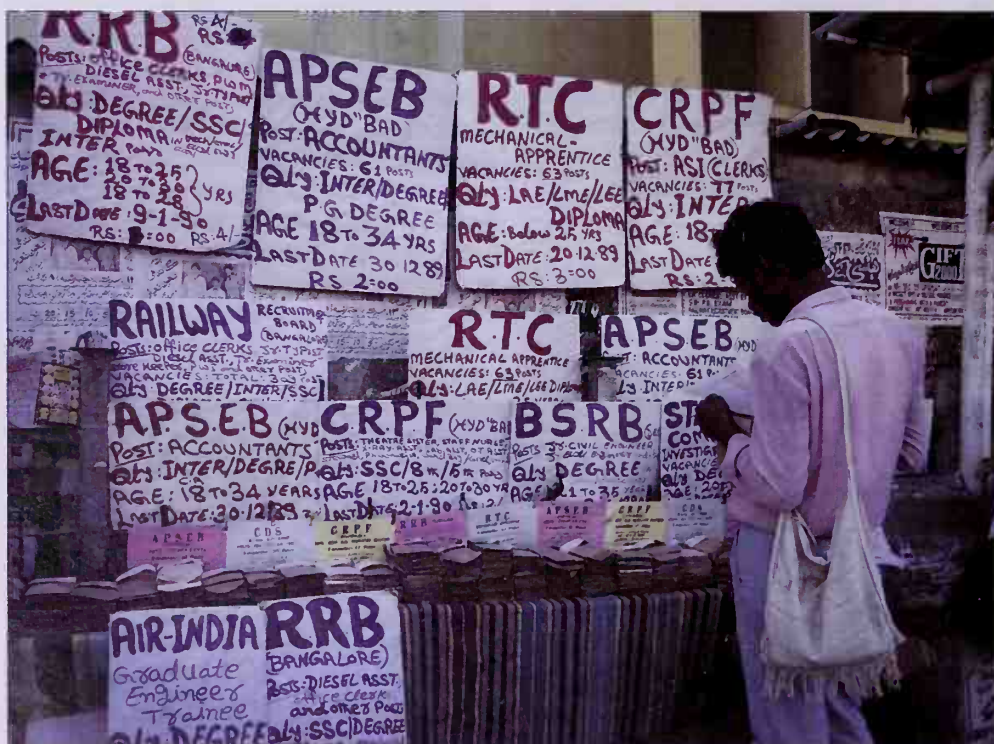 R.R.B
RS 4/-
RS:
POSTS: OFFICE CLERKS, P.W.O M
(BANGALORE)
DIESEL ASST, Jr.TYPIST
TY.EXAMINER, and OTHER POSTS
Qly: DEGREE/SSC/
DIPLOMA
INTER Pass
AGE: 18 To 25
20 To 30
18 To 28
YRS
LAST DATE: 9-1-90
RS: :00 RS.4/-
APSEB
(HYD"BAD)
POST: ACCOUNTANTS
VACANCIES: 61 POSTS
Qly: INTER/DEGREE
P.G DEGREE
AGE 18 To 34 YRS
LAST DATE 30 12 89
RS 2=00
R.T.C
MECHANICAL-
APPRENTICE
VACANCIES: 63 POSTS
Qly: LAE/LME/LEE
DIPLOMA
AGE: Below 25 YRS
LAST DATE: 20.12.89
RS: 3=00
CRPF
(HYD"BAD)
POST: ASI (CLERKS)
VACANCIES: 77 POSTS
Qly: INTER
AGE: 18
LAST DATE
RS=2
GIFT
RAILWAY
RECRUITME
BOARD
(BANGALORE)
POSTS: OFFICE CLERKS Jr.TYPIST
Diesel ASST, Tr. Examiner
Store Keeper, P.W.I and other POST
VACANCIES: TOTAL:
Qly: DEGREE/INTER/SSC
R.T.C
MECHANICAL APPRENTICE
VACANCIES: 63 POSTS
Qly: LAE/LME/LEE DIPLOM
APSEB
(HYD
: ACCOUNTANT
VACANCIES: 61 POS
Qly INTER/
APSEB (HYD
POST: ACCOUNTANTS
Qly: INTER/DEGRE/P
AGE: 18 To 34 YEARS
LAST DATE: 30.12.89
CRPF (HYD"BA
POSTS: THEATRE SISTER, STAFF NURSE
Qly: SSC/8 th/5 th
AGE 18 To 25: 20 To 30 YR
LAST DATE: 2-1-90 Rs:2/
BSRB
POSTS JY.CIVIL ENGINEER
Qly DEGREE
AGE 21 To 35 YEARS
ST
COM
INVESTIG
VACANCIE
Qly DE
AGE 20
APSEB
CDS
CRPF
RRB
RTC
APSEB
CRPF
CDS
AIR-INDIA
Graduate
Engineer
Trainee
Qly: DEGREE
RRB
(BANGALORE)
POSTS: DIESEL ASST.
office clerk
and other Posts
Qly: SSC/DEGREE